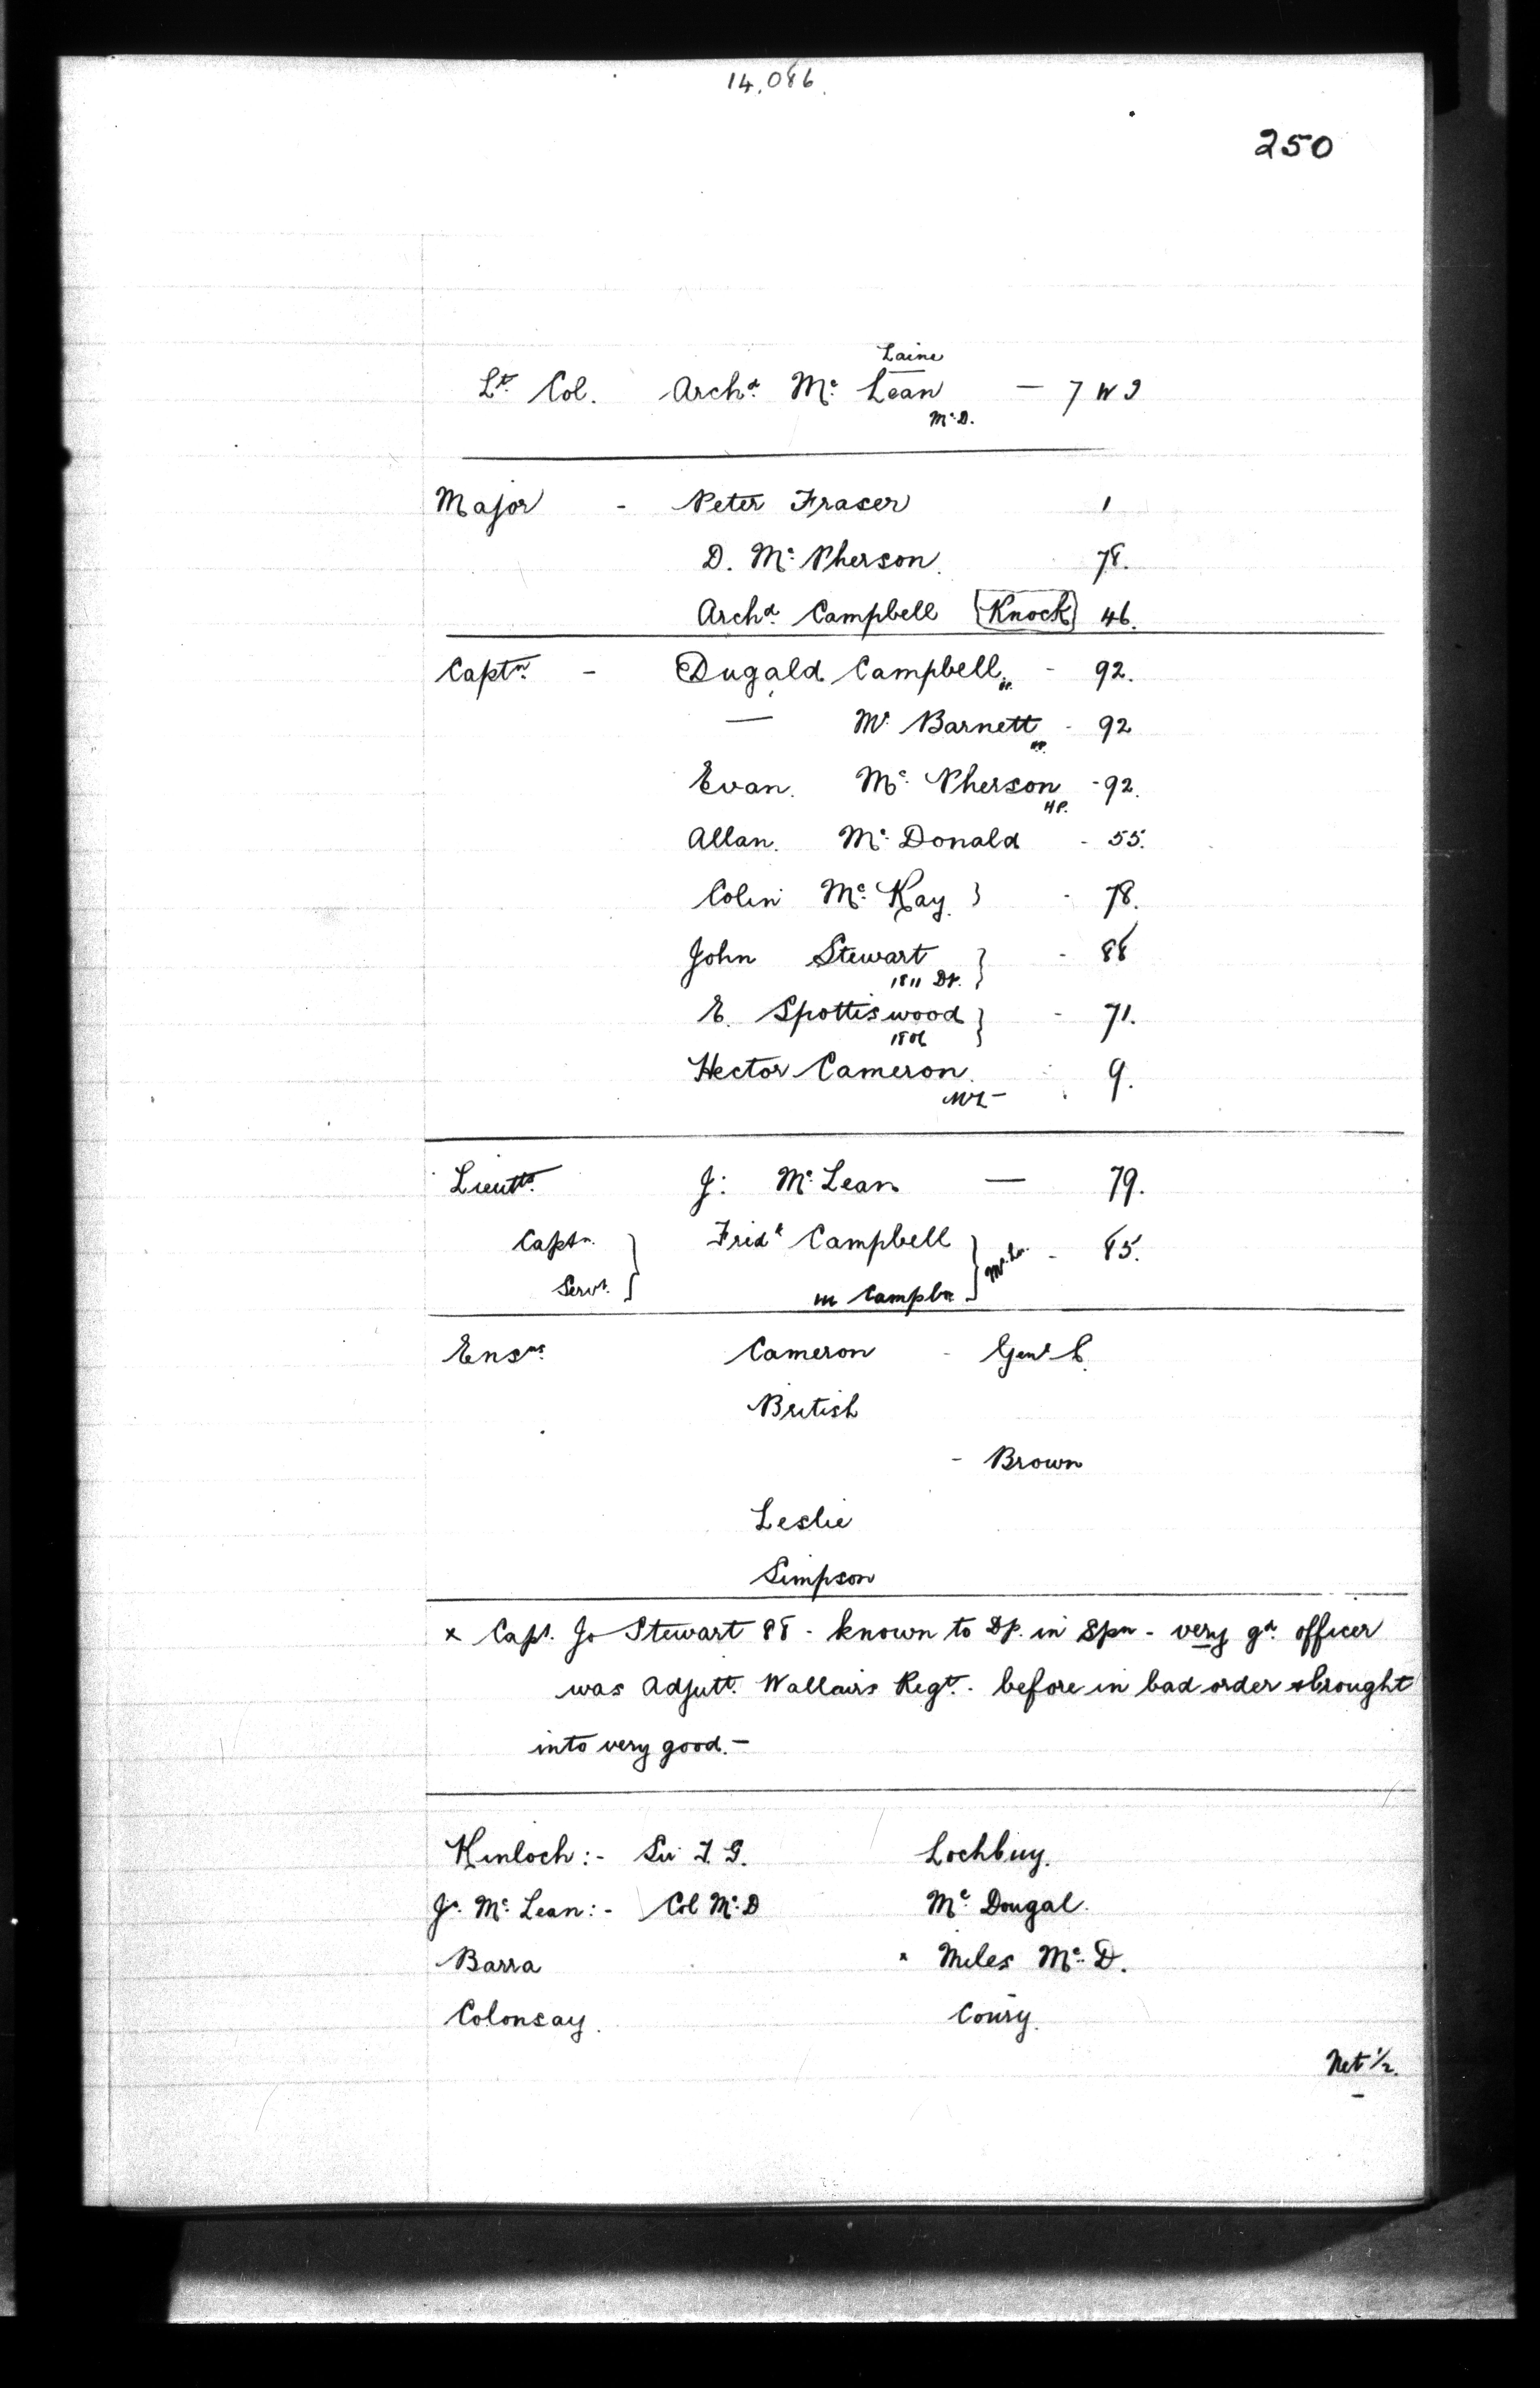 14,086.
250
Laine
Lt. Col. Archd. Mc. Lean — 7 W I
Mc. D.
Major - Peter Fraser 1
D. Mc. Pherson. 78.
Archd. Campbell [Knock] 46.
Captn. - Dugald Campbell - 92.
— Mc. Barnett - 92
Evan. Mc. Pherson - 92.
HP.
Allan. Mc. Donald - 55.
Colin Mc. Kay. } - 78.
John Stewart } - 88
1811 Dp.
E. Spottiswood } - 71.
1806
Hector Cameron. 9.
Lieutts. J: Mc. Lean — 79.
Captn. } Fredk Campbell } - 85.
Servt. in Campbn
Ensns. Cameron - Genl C.
British
- Brown
Leslie
Simpson
x Capt. Jo Stewart 88 - known to Dp. in Spn - very gd. officer
was Adjutt. Wallairs Regt. - before in bad order & brought
into very good. —
Kinloch :- Sir T. G. Lochbuy.
Jo. Mc. Lean :- Col Mc. D Mc. Dougal.
Barra x Miles Mc. D.
Colonsay. Coury.
Net 1/2.